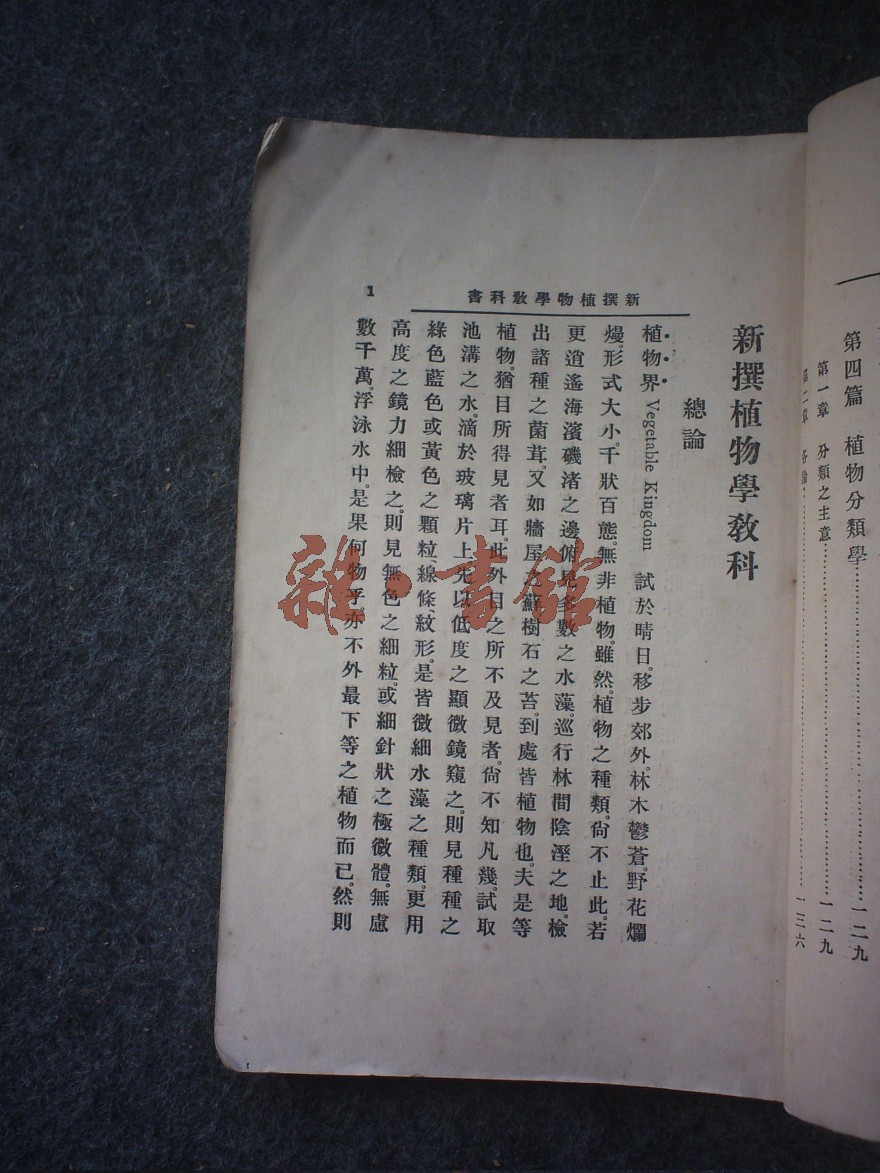 第四篇 植物分類學……一二九
第一章 分類之主意……一二九
第二章 各論……一三六
新撰植物學敎科書
1
新撰植物學敎科
總論
植物界 Vegetable Kingdom 試於晴日。移步郊外。林木鬱蒼。野花爛
熳。形式大小。千狀百態。無非植物。雖然。植物之種類。尙不止此。若
更逍遙海濱磯渚之邊。俯見多數之水藻。巡行林間陰溼之地。檢
出諸種之菌茸。又如牆屋之蘚。樹石之苔。到處皆植物也。夫是等
植物。猶目所得見者耳。此外目之所不及見者。尙不知凡幾。試取
池溝之水。滴於玻璃片上。先以低度之顯微鏡窺之。則見種種之
綠色藍色或黃色之顆粒線條紋形。是皆微細水藻之種類。更用
高度之鏡力細檢之。則見無色之細粒。或細針狀之極微體。無慮
數千萬。浮泳水中。是果何物乎。亦不外最下等之植物而已。然則
雜·書館